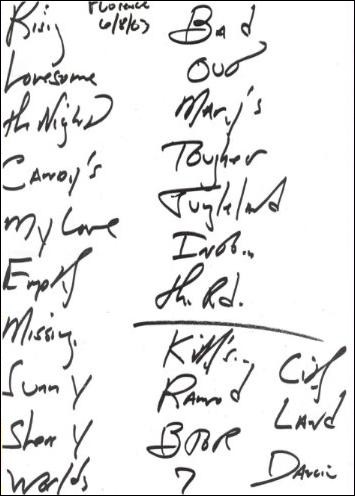 Florence
6/8/03
Rising
Lonesome
the Night
Candy's
My Love
Empty
Missing
Sunny
Sherry
Worlds
Bad
Out
Mary's
Tougher
Jungleland
Invob.
the Rd.
Kitty's
Ramrod
BTOR
7
City
Land
Dancin